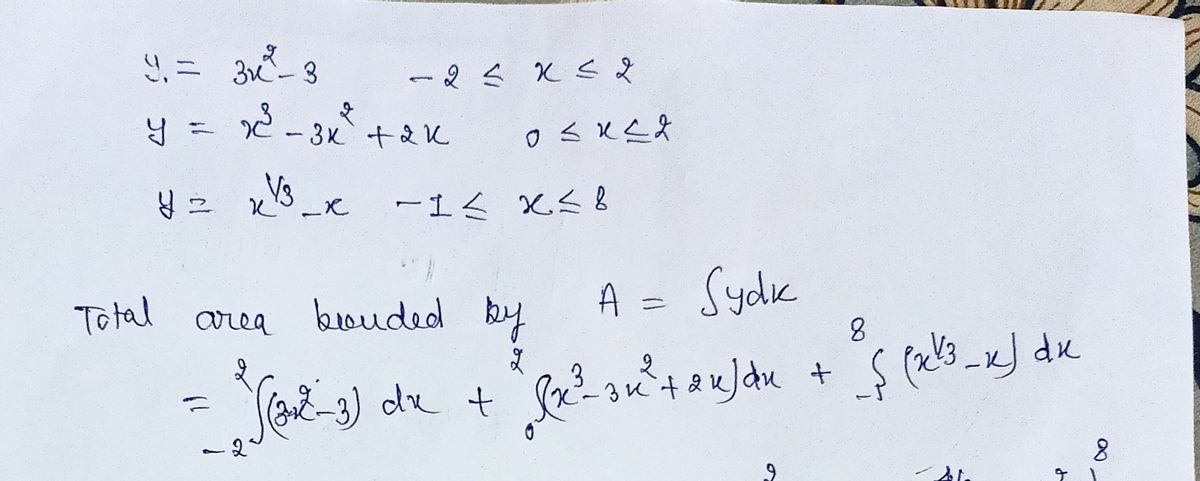 y. = 3x² - 3    -2 ≤ x ≤ 2
y = x³ - 3x² + 2x    0 ≤ x ≤ 2
y = x^1/3 - x    -1 ≤ x ≤ 8
Total area bounded by A = ∫ydx
= ₋₂∫²(3x² - 3) dx + ₀∫²(x³ - 3x² + 2x)dx + ₋₁∫⁸ (x^1/3 - x) dx